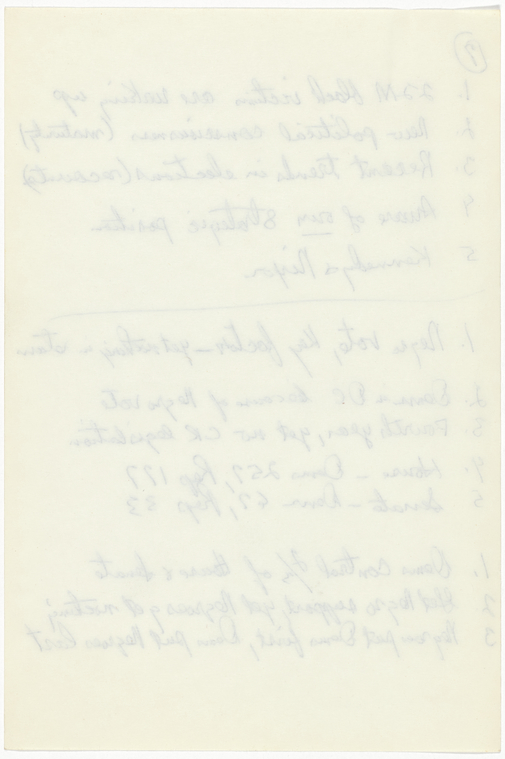 1. 22M black victims are waking up
2. New political consciousness (maturity)
3. Recent trends in elections
4. Aware of our strategic position
5 Kennedy & Nixon
1. Negro vote, key factor - yet nothing in
2. Dems in DC because of Negro vote
3 Fourth year, yet no CR legislation
4. House - Dems 257, Rep 177
5 Senate - Dems 67, Rep 33
1. Dems control 2/3 of House & Senate
2. Get Negro support, yet Negroes get nothing
3 Negroes put Dems first, Dems put Negroes last